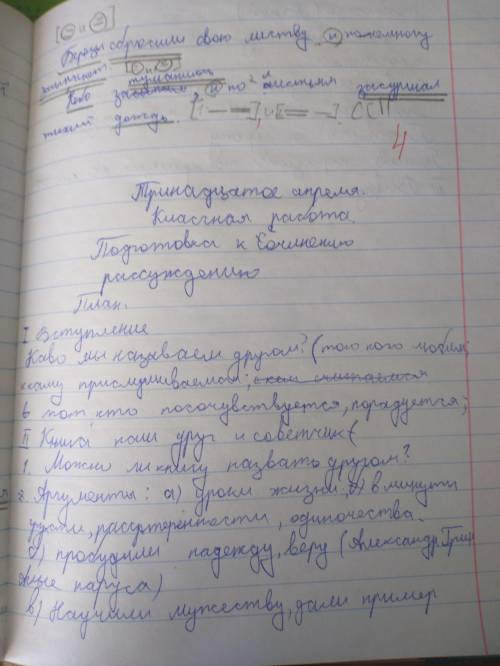 [О и О]
Березы сбросили свою листву и понемногу
[О и О]
Небо затянуло туманом, и по листьям зашуршал
тихий дождь. [ — ], и [ — ]. ССП
4
Тринадцатое апреля.
Классная работа
Подготовка к Сочинению
рассуждению
План.
I Вступление
Каво мы называем другом? (того кого любим;
кому прислушиваемся;
в тот кто посочувствуется, порадуется;
II Книга наш друг и советчик (
1. Можно ли книгу назвать другом?
2. Аргументы: а) уроки жизни, в минуты
грусти, рассерженности, одиночества.
б) пробудили надежду, веру (Александр Грин
Алые паруса)
в) Научили мужеству, дали пример